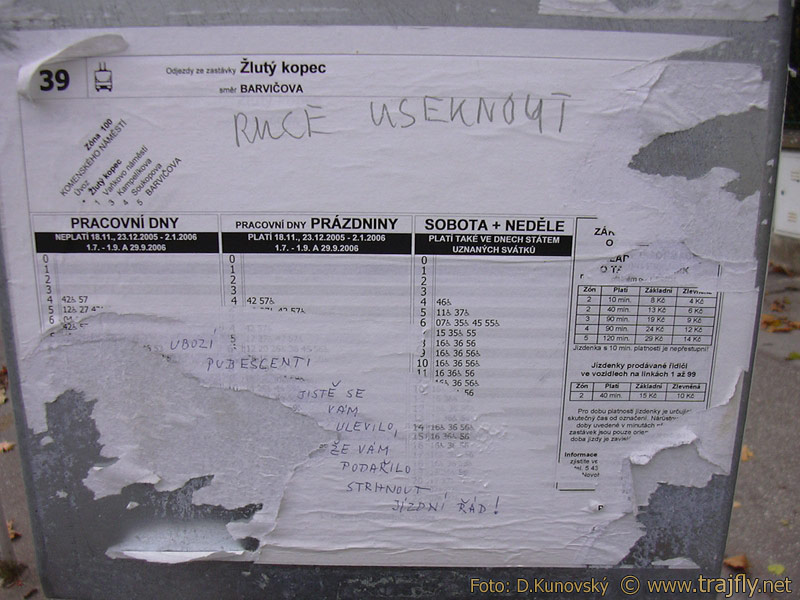 39
Odjezdy ze zastávky Žlutý kopec
směr BARVIČOVA
RUCE USEKNOUT
Zóna 100
KOMENSKÉHO NÁMĚSTÍ
Úvoz
* Žlutý kopec
1 Vaňkovo náměstí
3 Kampelíkova
4 Soukopova
5 BARVIČOVA
PRACOVNÍ DNY
NEPLATÍ 18.11., 23.12.2005 - 2.1.2006
1.7. - 1.9. A 29.9.2006
0
1
2
3
4 42 57
5 12 27
6
PRACOVNÍ DNY PRÁZDNINY
PLATÍ 18.11., 23.12.2005 - 2.1.2006
1.7. - 1.9. A 29.9.2006
0
1
2
3
4 42 57
5
SOBOTA + NEDĚLE
PLATÍ TAKÉ VE DNECH STÁTEM
UZNANÝCH SVÁTKŮ
0
1
2
3
4 46
5 11 37
6 07 35 45 55
15 35 55
8 16 36 56
9 16 36 56
10 16 36 56
11 16 36 56
16 36 56
56
14 16 36 56
15 16 36 56
Zón Platí Základní Zlevněná
2 10 min. 8 Kč 4 Kč
2 40 min. 13 Kč 6 Kč
3 90 min. 19 Kč 9 Kč
4 90 min. 24 Kč 12 Kč
5 120 min. 29 Kč 14 Kč
Jízdenka s 10 min. platností je nepřestupní!
Jízdenky prodávané řidiči
ve vozidlech na linkách 1 až 99
Zón Platí Základní Zlevněná
2 40 min. 15 Kč 10 Kč
Pro dobu platnosti jízdenky je
skutečný čas od označení.
doby uvedené v minutách
zastávek jsou pouze
doba jízdy je
Informace
zjistíte
UBOZÍ
PUBESCENTI
JISTĚ SE
VÁM
ULEVILO,
ŽE VÁM
PODAŘILO
STRHNOUT
JÍZDNÍ ŘÁD!
Foto: D.Kunovský © www.trajfly.net